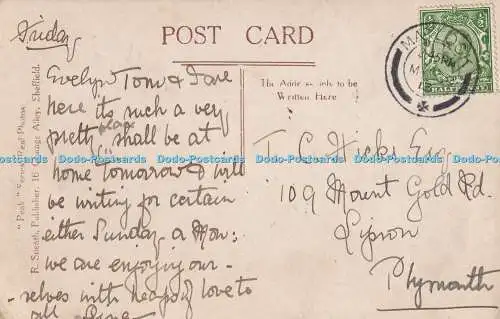 Friday
POST CARD
Evelyn Tom & I are
here its such a very
pretty place shall be at
home tomorrow & will
be writing for certain
either Sunday or Mon:
we are enjoying our
-selves with heaps of love to
all
The Address only to be
Written Here
T. C. Hicks Esq
109 Mount Gold Rd.
Lipson
Plymouth
"Peak" Series Real Photos.
R. Sneath, Publisher, 16 Alley, Sheffield.
HALF
Dodo-Postcards Dodo-Postcards Dodo-Postcards Dodo-Postcards Dodo-Postcards Dodo-Postcards